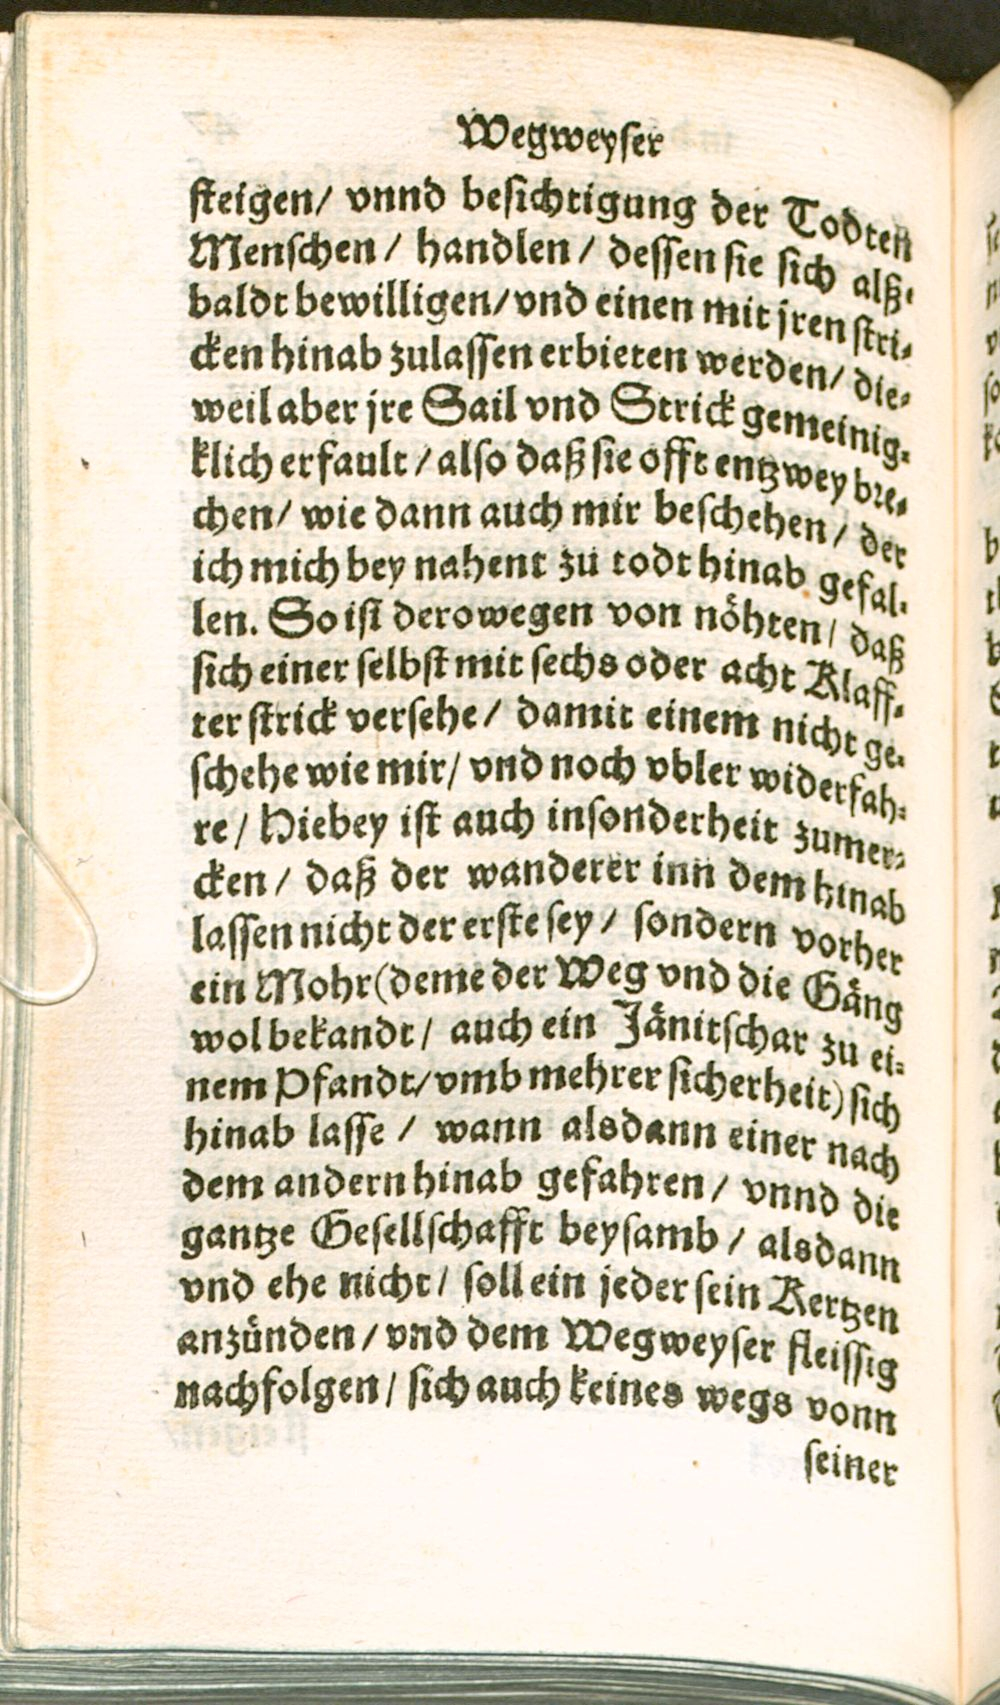 Wegweyſer
ſteigen/ vnnd beſichtigung der Todten
Menſchen / handlen / deſſen ſie ſich alß⸗
baldt bewilligen/ vnd einen mit jren ſtri⸗
cken hinab zulaſſen erbieten werden/ die⸗
weil aber jre Sail vnd Strick gemeinig⸗
klich erfault / alſo daß ſie offt entzwey bre⸗
chen/ wie dann auch mir beſchehen / der
ich mich bey nahent zu todt hinab gefal⸗
len. So iſt derowegen von nöhten/ daß
ſich einer ſelbſt mit ſechs oder acht Klaff⸗
ter ſtrick verſehe / damit einem nicht ge⸗
ſchehe wie mir/ vnd noch vbler widerfah⸗
re / Hiebey iſt auch inſonderheit zumer⸗
cken / daß der wanderer inn dem hinab
laſſen nicht der erſte ſey / ſondern vorher
ein Mohr (deme der Weg vnd die Gäng
wol bekandt / auch ein Jänitſchar zu ei⸗
nem Pfandt/ vmb mehrer ſicherheit) ſich
hinab laſſe / wann alsdann einer nach
dem andern hinab gefahren / vnnd die
gantze Geſellſchafft beyſamb / alsdann
vnd ehe nicht / ſoll ein jeder ſein Kertzen
anzünden / vnd dem Wegweyſer fleiſſig
nachfolgen / ſich auch keines wegs vonn
ſeiner